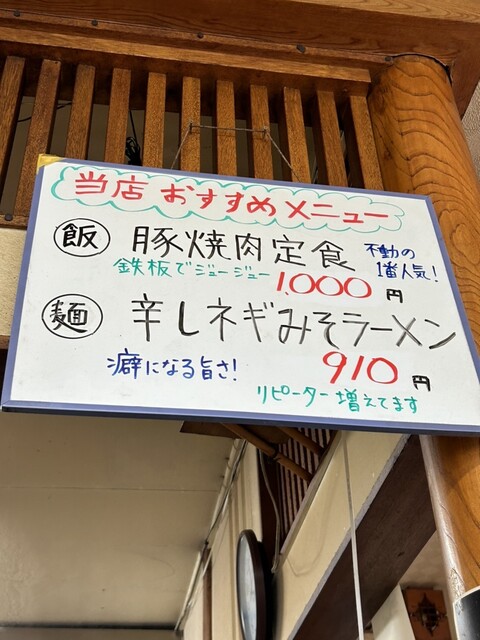 当店おすすめメニュー
飯 豚焼肉定食 不動の
1番人気!
鉄板でジュージュー 1,000円
麺 辛しネギみそラーメン
癖になる旨さ! 910円
リピーター増えてます